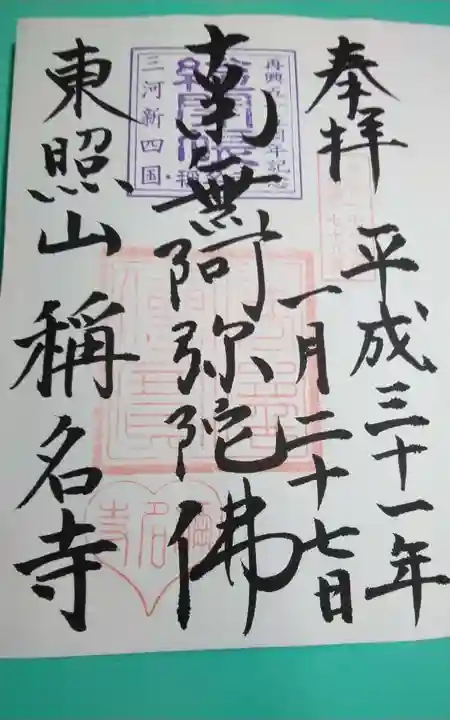 奉拝
平成三十一年
一月二十七日
南無阿弥陀佛
東照山 稱名寺
三河新四国
稱名寺